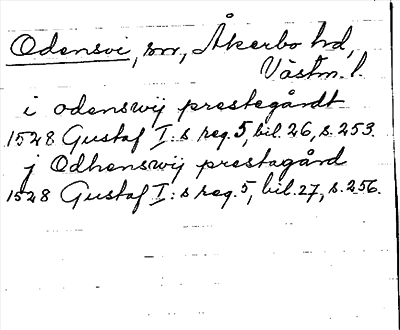 Odensvi, sn, Åkerbo hd,
Västm. l.
i odenswij prestegårdt
1528 Gustaf I:s reg. 5, bil. 26, s. 253.
j Odhenswij prestagård
1528 Gustaf I:s reg. 5, bil. 27, s. 256.